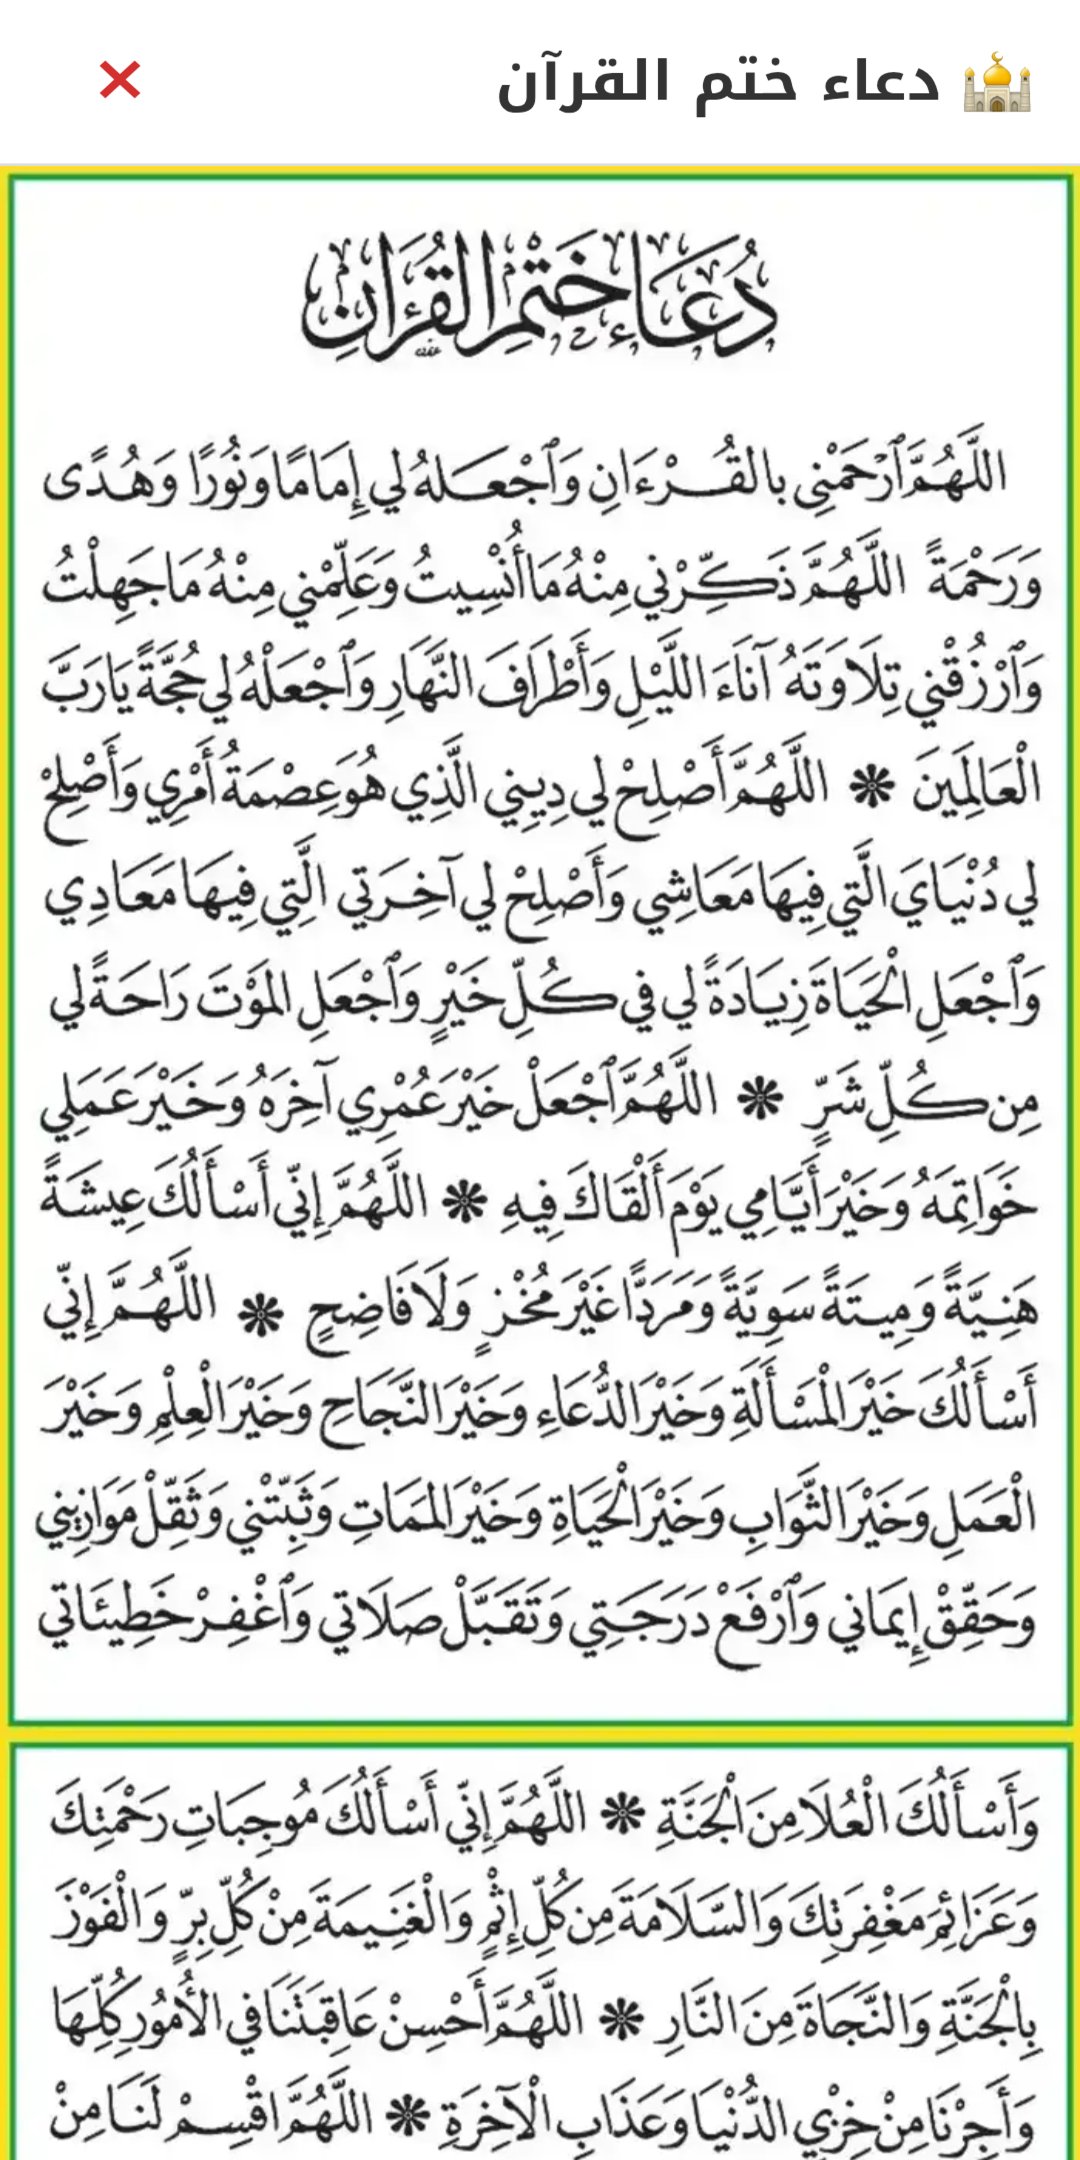 دعاء ختم القرآن
دُعَاءُ خَتْمِ الْقُرْآنِ
اللَّهُمَّ ٱرْحَمْنِي بالقُرْءَانِ وَٱجْعَلهُ لي إِمَامًا وَنُورًا وَهُدًى
وَرَحْمَةً اللَّهُمَّ ذَكِّرْنِي مِنْهُ مَا أُنْسِيتُ وَعَلِّمْنِي مِنْهُ مَا جَهِلْتُ
وَٱرْزُقْنِي تِلَاوَتَهُ آنَاءَ اللَّيْلِ وَأَطْرَافَ النَّهَارِ وَٱجْعَلْهُ لِي حُجَّةً يَا رَبَّ
الْعَالَمِينَ ❋ اللَّهُمَّ أَصْلِحْ لِي دِينِي الَّذِي هُوَ عِصْمَةُ أَمْرِي وَأَصْلِحْ
لِي دُنْيَايَ الَّتِي فِيهَا مَعَاشِي وَأَصْلِحْ لِي آخِرَتِي الَّتِي فِيهَا مَعَادِي
وَٱجْعَلِ الْحَيَاةَ زِيَادَةً لِي فِي كُلِّ خَيْرٍ وَٱجْعَلِ المَوْتَ رَاحَةً لِي
مِن كُلِّ شَرٍّ ❋ اللَّهُمَّ ٱجْعَلْ خَيْرَ عُمْرِي آخِرَهُ وَخَيْرَ عَمَلِي
خَوَاتِمَهُ وَخَيْرَ أَيَّامِي يَوْمَ أَلْقَاكَ فِيهِ ❋ اللَّهُمَّ إِنِّي أَسْأَلُكَ عِيشَةً
هَنِيَّةً وَمِيتَةً سَوِيَّةً وَمَرَدًّا غَيْرَ مُخْزٍ وَلَا فَاضِحٍ ❋ اللَّهُمَّ إِنِّي
أَسْأَلُكَ خَيْرَ الْمَسْأَلَةِ وَخَيْرَ الدُّعَاءِ وَخَيْرَ النَّجَاحِ وَخَيْرَ الْعِلْمِ وَخَيْرَ
الْعَمَلِ وَخَيْرَ الثَّوَابِ وَخَيْرَ الْحَيَاةِ وَخَيْرَ المَمَاتِ وَثَبِّتْنِي وَثَقِّلْ مَوَازِينِي
وَحَقِّقْ إِيمَانِي وَٱرْفَعْ دَرَجَتِي وَتَقَبَّلْ صَلَاتِي وَٱغْفِرْ خَطِيئَاتِي
وَأَسْأَلُكَ الْعُلَا مِنَ الْجَنَّةِ ❋ اللَّهُمَّ إِنِّي أَسْأَلُكَ مُوجِبَاتِ رَحْمَتِكَ
وَعَزَائِمَ مَغْفِرَتِكَ وَالسَّلَامَةَ مِن كُلِّ إِثْمٍ وَالْغَنِيمَةَ مِنْ كُلِّ بِرٍّ وَالْفَوْزَ
بِالْجَنَّةِ وَالنَّجَاةَ مِنَ النَّارِ ❋ اللَّهُمَّ أَحْسِنْ عَاقِبَتَنَا فِي الأُمُورِ كُلِّهَا
وَأَجِرْنَا مِنْ خِزْيِ الدُّنْيَا وَعَذَابِ الْآخِرَةِ ❋ اللَّهُمَّ اقْسِمْ لَنَا مِنْ